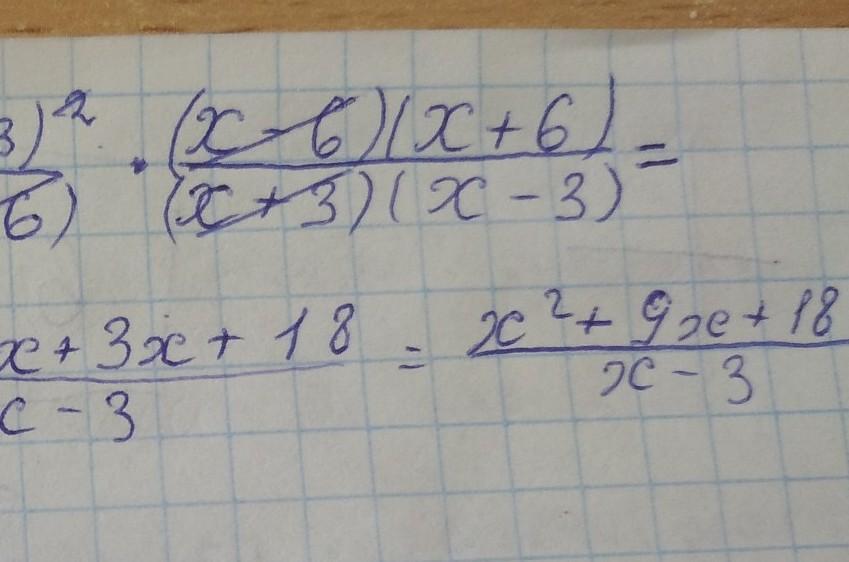 3)² / 6) · (x - 6)(x + 6) / (x + 3)(x - 3) =
x + 3x + 18 / x - 3 = x² + 9x + 18 / x - 3